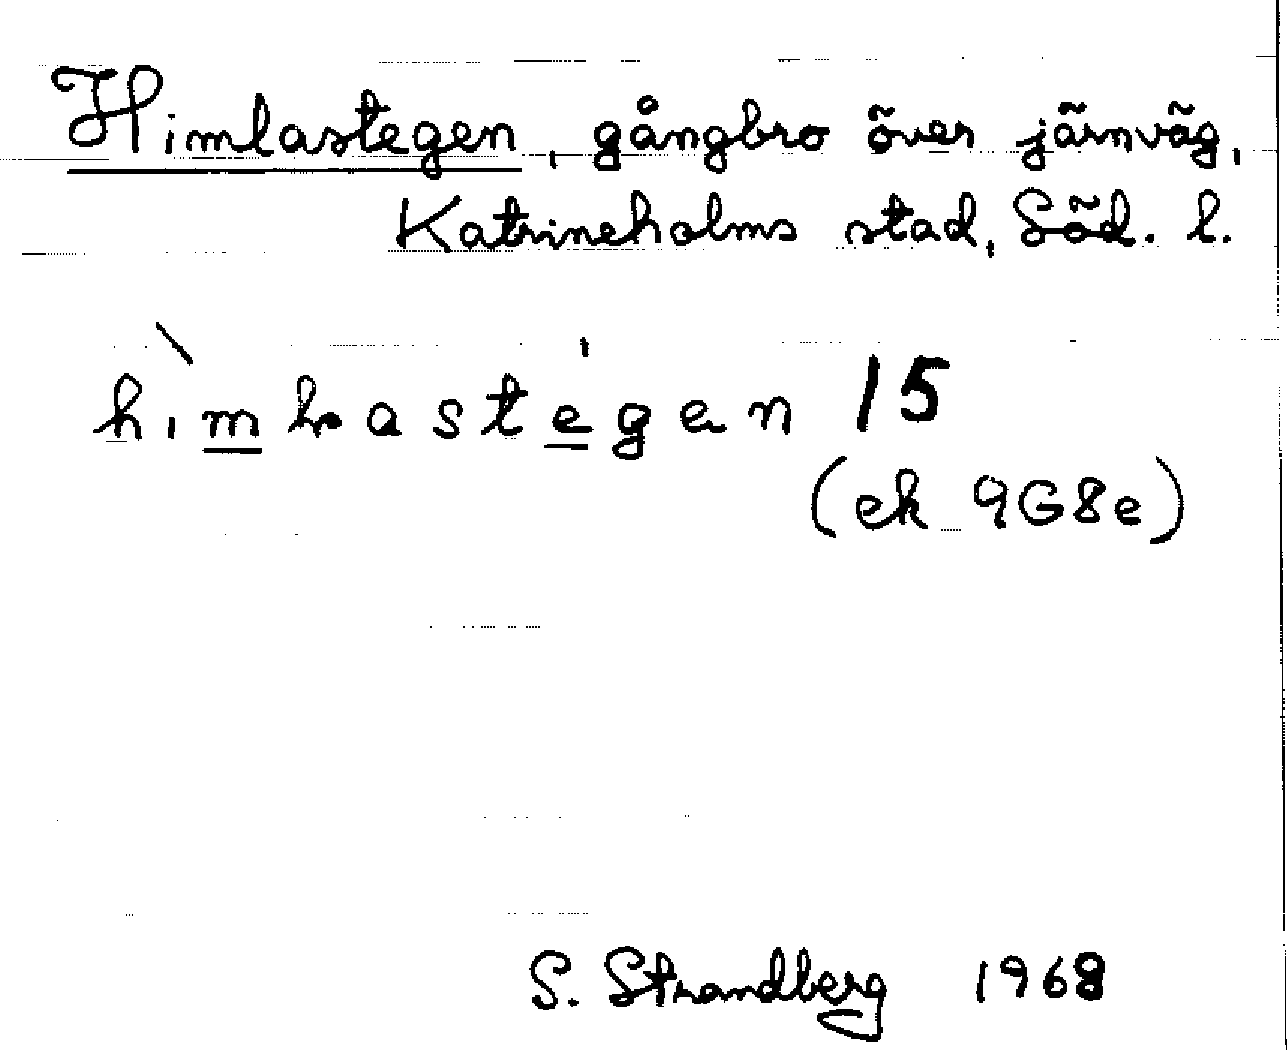 Himlastegen, gångbro över järnväg,
Katrineholms stad, Söd. l.
himlastegen 15
(ek 9G8e)
S. Strandberg 1968